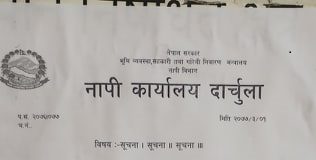 नेपाल सरकार
भूमि व्यवस्था,सहकारी तथा गरिबी निवारण मन्त्रालय
नापी विभाग
नापी कार्यालय दार्चुला
प.सं. २०७६/०७७
च.नं.
मिति २०७७/३/०१
विषय :-सूचना । सूचना ॥ सूचना ॥।